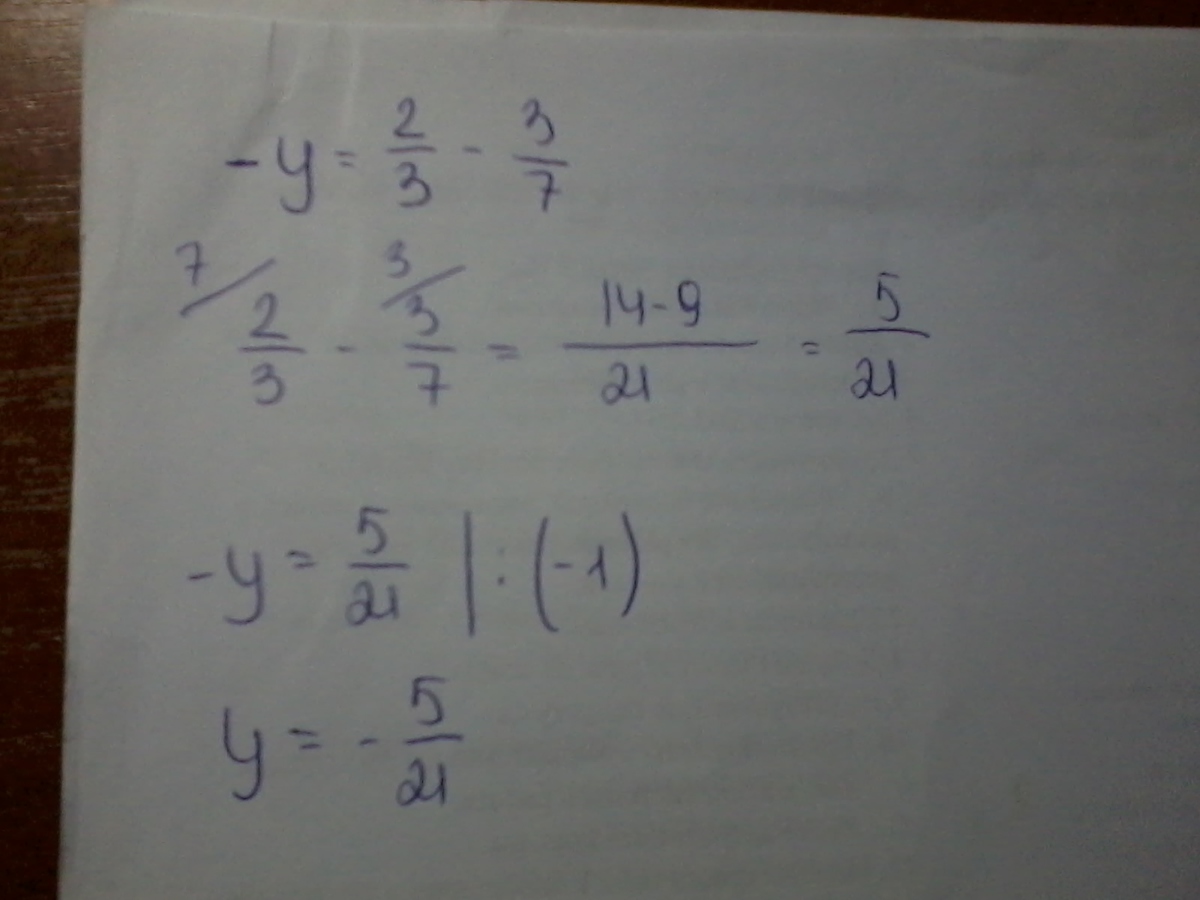 -y = 2/3 - 3/7
7/ 2/3 - 3/ 3/7 = 14-9/21 = 5/21
-y = 5/21 | : (-1)
y = - 5/21